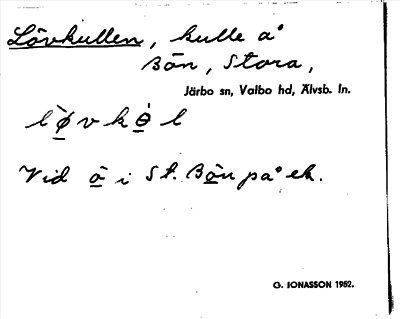 Lövkullen, kulle å
Bön, Stora,
Järbo sn, Valbo hd, Älvsb. ln.
Vid ö i St. Bön på ek.
G. JONASSON 1982.